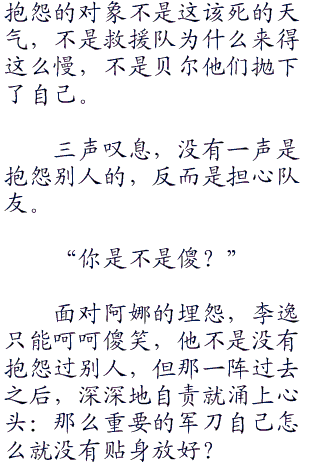 抱怨的对象不是这该死的天
气，不是救援队为什么来得
这么慢，不是贝尔他们抛下
了自己。
三声叹息，没有一声是
抱怨别人的，反而是担心队
友。
“你是不是傻？”
面对阿娜的埋怨，李逸
只能呵呵傻笑，他不是没有
抱怨过别人，但那一阵过去
之后，深深地自责就涌上心
头：那么重要的军刀自己怎
么就没有贴身放好？